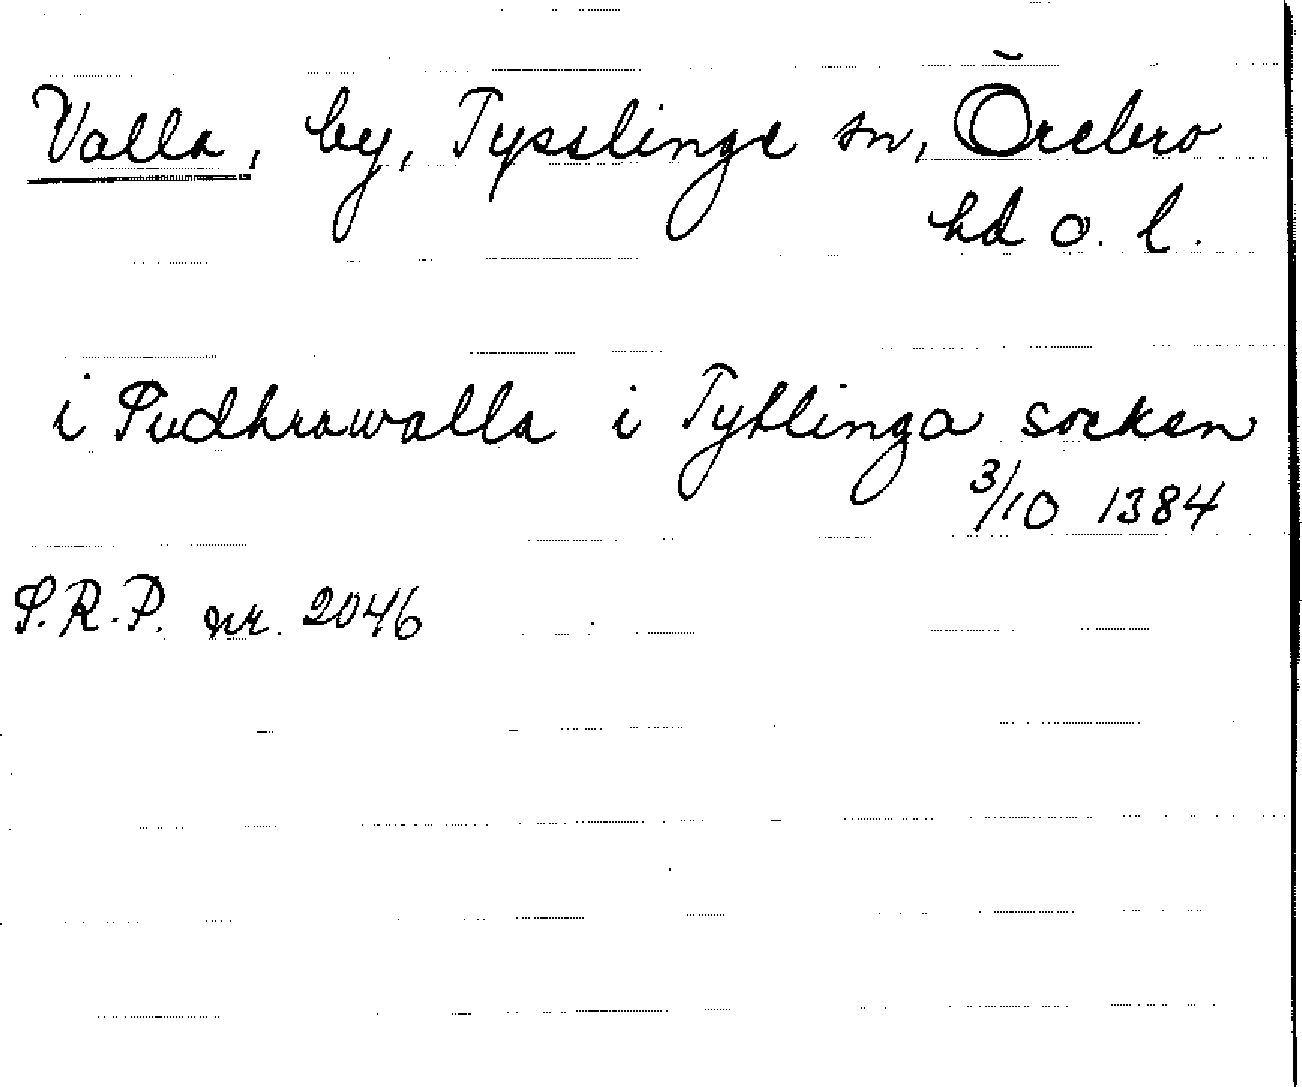 Valla, by, Tysslinge sn, Örebro
hd o. l.
i Sudhrawalla i Tyslinga socken
3/10 1384
S.R.P. nr. 2046